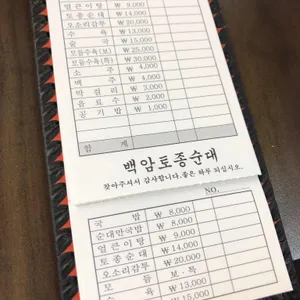 얼큰이탕 ₩ 9,000
토종순대 ₩ 14,000
오소리감투 ₩ 20,000
수육 ₩ 13,000
술국 ₩ 15,000
모듬수육(보) ₩ 25,000
모듬수육(특) ₩ 30,000
소주 ₩ 4,000
맥주 ₩ 4,000
막걸리 ₩ 3,000
음료수 ₩ 2,000
공기밥 ₩ 1,000
합계
백암토종순대
찾아주셔서 감사합니다.좋은 하루 되십시오.
NO.
국밥 ₩ 8,000
순대만국밥 ₩ 8,000
얼큰이탕 ₩ 9,000
토종순대 ₩ 14,000
오소리감투 ₩ 20,000
모듬 보.특
수육 ₩ 13,000
₩ 15,000